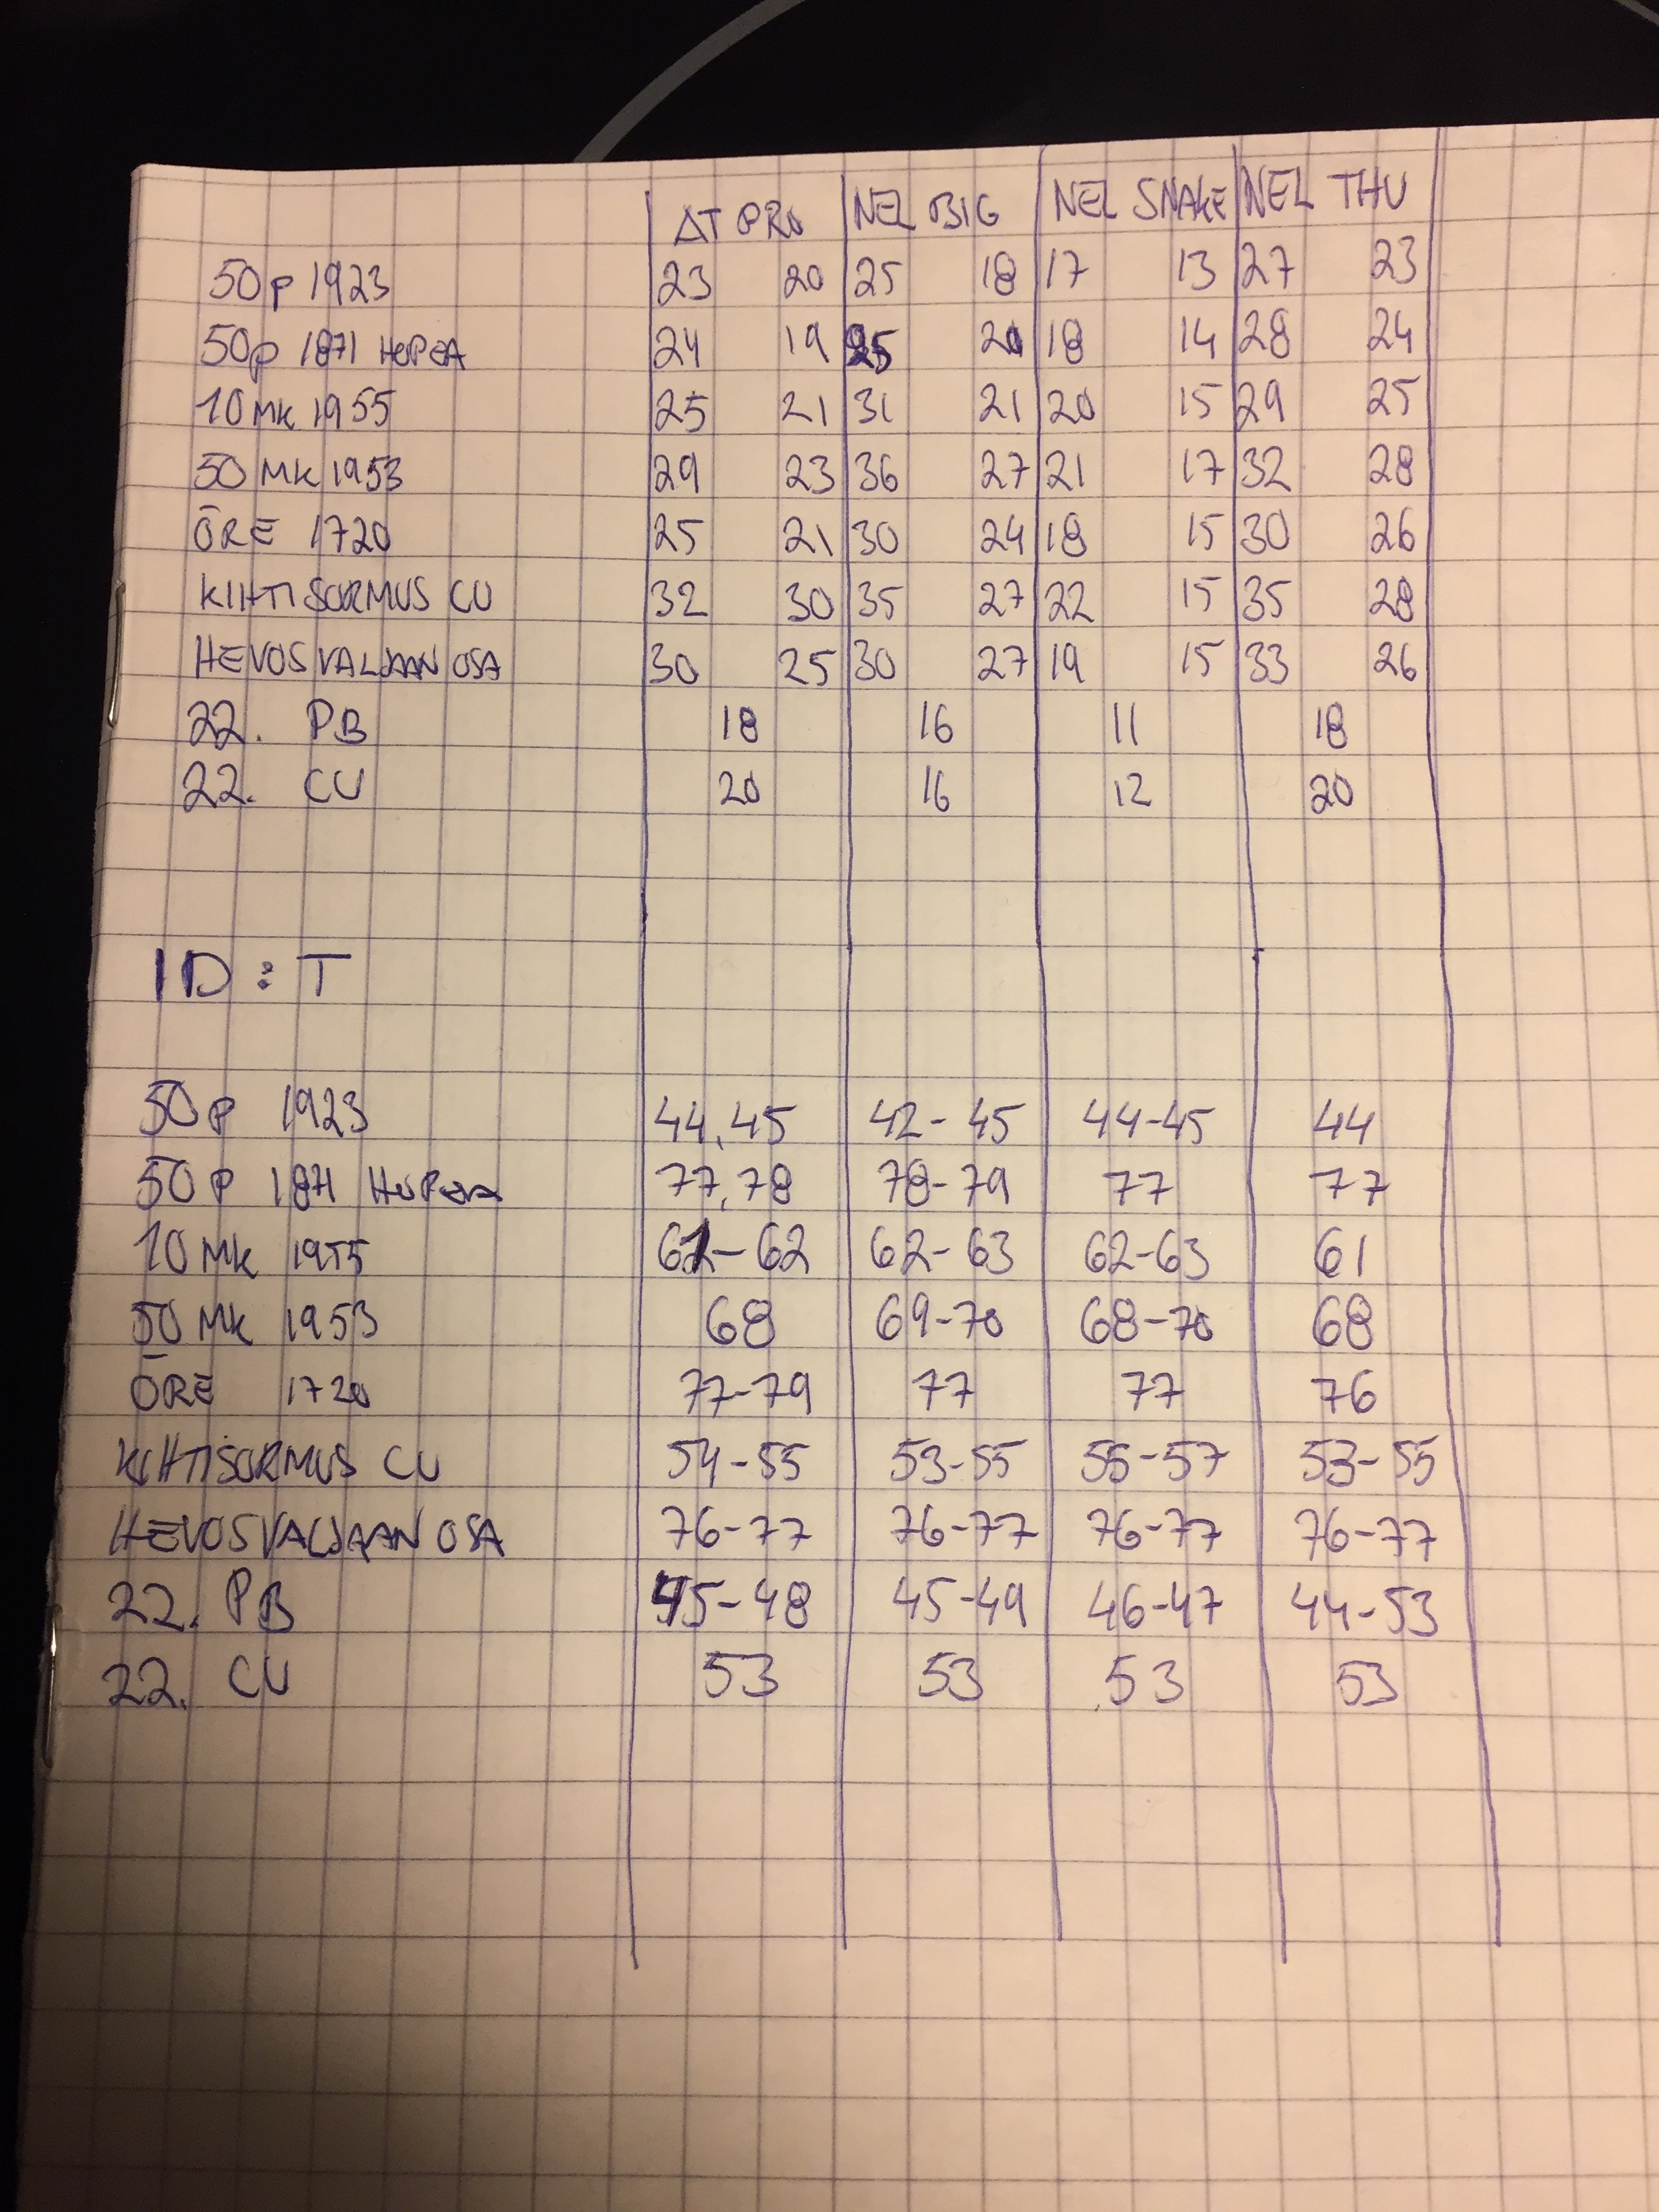 AT PRO NEL BIG NEL SNAKE NEL THU
50p 1923 23 20 25 18 17 13 27 23
50p 1871 HOPEA 24 19 25 20 18 14 28 24
10 MK 1955 25 21 31 21 20 15 29 25
50 MK 1953 29 23 36 27 21 17 32 28
ÖRE 1720 25 21 30 24 18 15 30 26
KIHTISORMUS CU 32 30 35 27 22 15 35 28
HEVOSVALJAAN OSA 30 25 30 27 19 15 33 26
22. PB 18 16 11 18
22. CU 20 16 12 20
ID:T
50P 1923 44,45 42-45 44-45 44
50P 1871 HOPEA 77,78 78-79 77 77
10 MK 1955 61-62 62-63 62-63 61
50 MK 1953 68 69-70 68-70 68
ÖRE 1720 77-79 77 77 76
KIHTISORMUS CU 54-55 53-55 55-57 53-55
HEVOSVALJAAN OSA 76-77 76-77 76-77 76-77
22. PB 45-48 45-49 46-47 44-53
22. CU 53 53 53 53